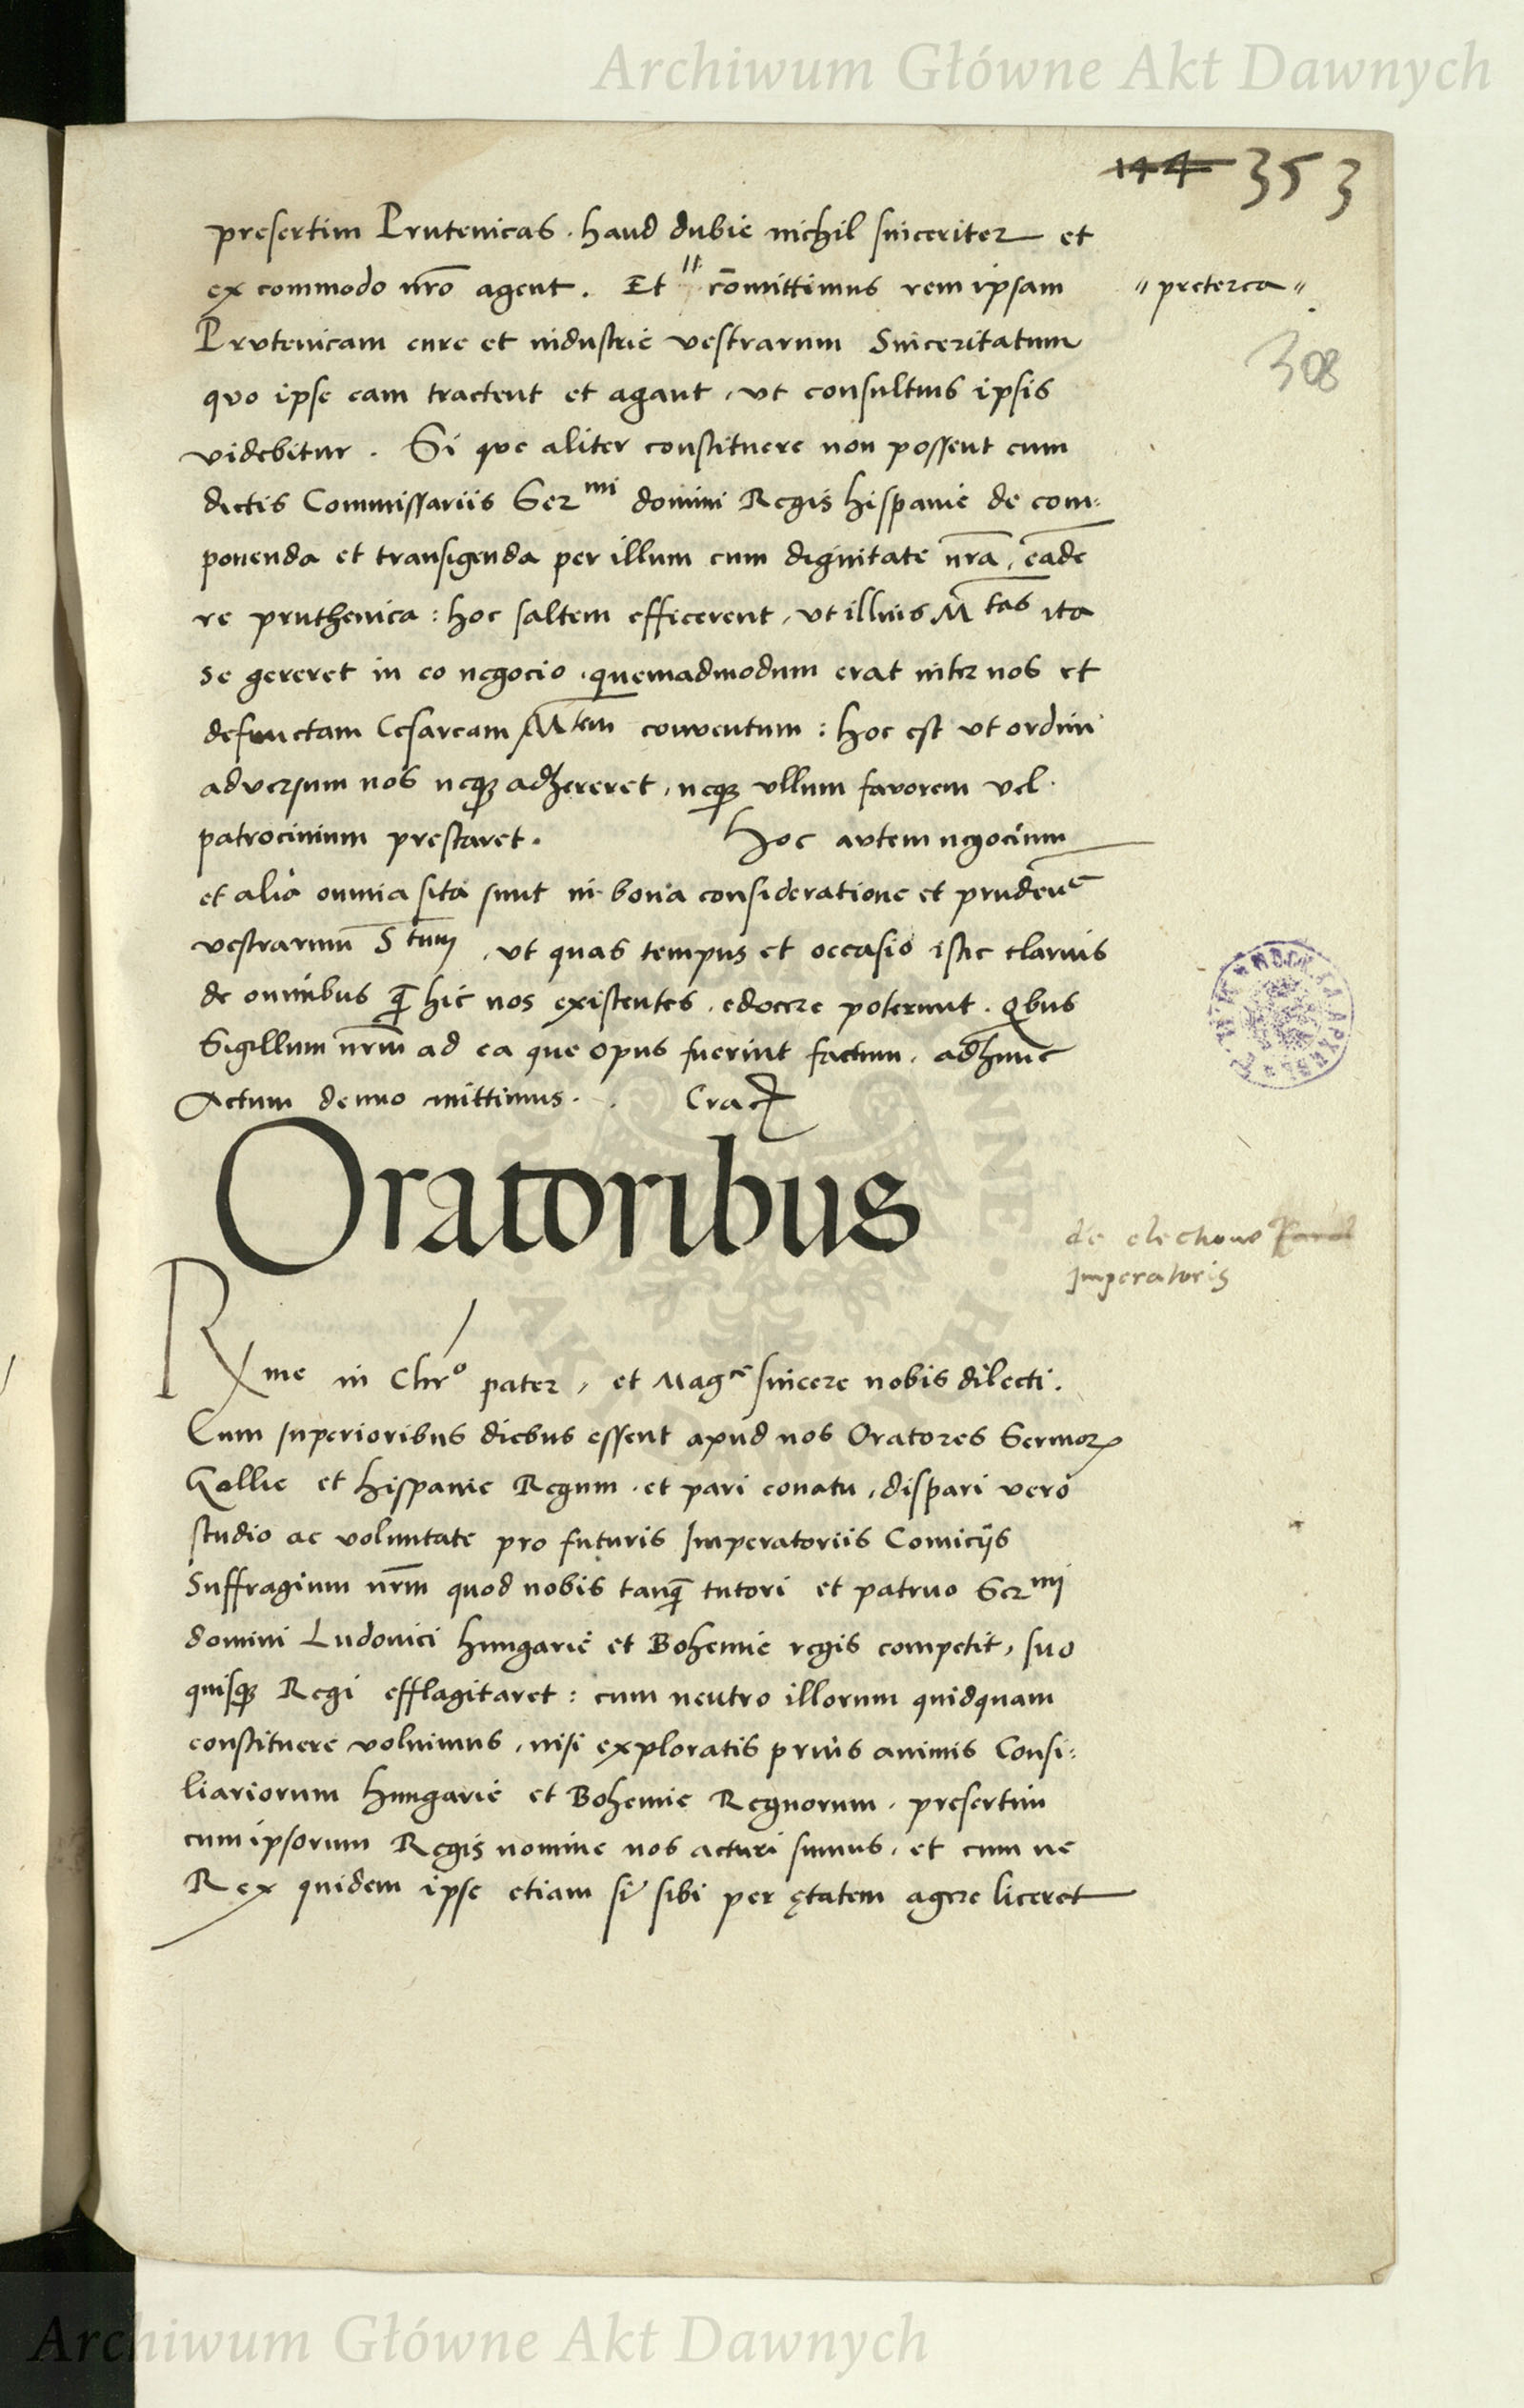 Archiwum Główne Akt Dawnych
144 353
presertim Prutenicas . haud dubie nichil sinceriter et
ex commodo nr̃o agent . Et " cõmittimus rem ipsam
" preterea "
Prutenicam cure et industrie vestrarum Sinceritatum
308
quo ipse eam tractent et agant , ut consultius ipsis
videbitur . Si qve aliter constituere non possent cum
dictis Commissariis Ser mi domini Regis hispanie de com:
ponenda et transigenda per illum cum dignitate nr̃a , eadē
re pruthenica : hoc saltem efficerent , ut illius M tas ita
se gereret in eo negocio , quemadmodum erat inter nos et
defunctam Cesaream M tem conventum : hoc est ut ordini
adversum nos neqȝ adhereret , neqȝ ullum favorem vel
patrocinium prestaret . Hoc autem negocium
et alia omnia sita sunt in bona consideratione et prudēn e
vestrarum S tum , ut quas tempus et occasio istic clarius
de omnibus q̃ hic nos existentes , edocere poterunt . Qbus
Sigillum nr̃m ad ea que opus fuerint factum , adhunc
Actum denuo mittimus . Crac
Oratoribus
de electione
Imperatoris
Rme in Chr o pater , et Mag ce sincere nobis dilecti .
Cum superioribus diebus essent apud nos Oratores Sermorꝝ
Gallie et hispanie Regum , et pari conatu , dispari vero
studio ac voluntate pro futuris Imperatoriis Comicijs
Suffragium nr̃m quod nobis tanq̃ tutori et patruo Ser mi
domini Ludovici hungarie et Bohemie regis competit , suo
quisqȝ Regi efflagitaret : cum neutro illorum quidquam
constituere voluimus , nisi exploratis prius animis Consi:
liariorum hungarie et Bohemie Regnorum , presertim
cum ipsorum Regis nomine nos acturi sumus , et cum ne
Rex quidem ipse etiam si sibi per ętatem agere liceret
Archiwum Główne Akt Dawnych